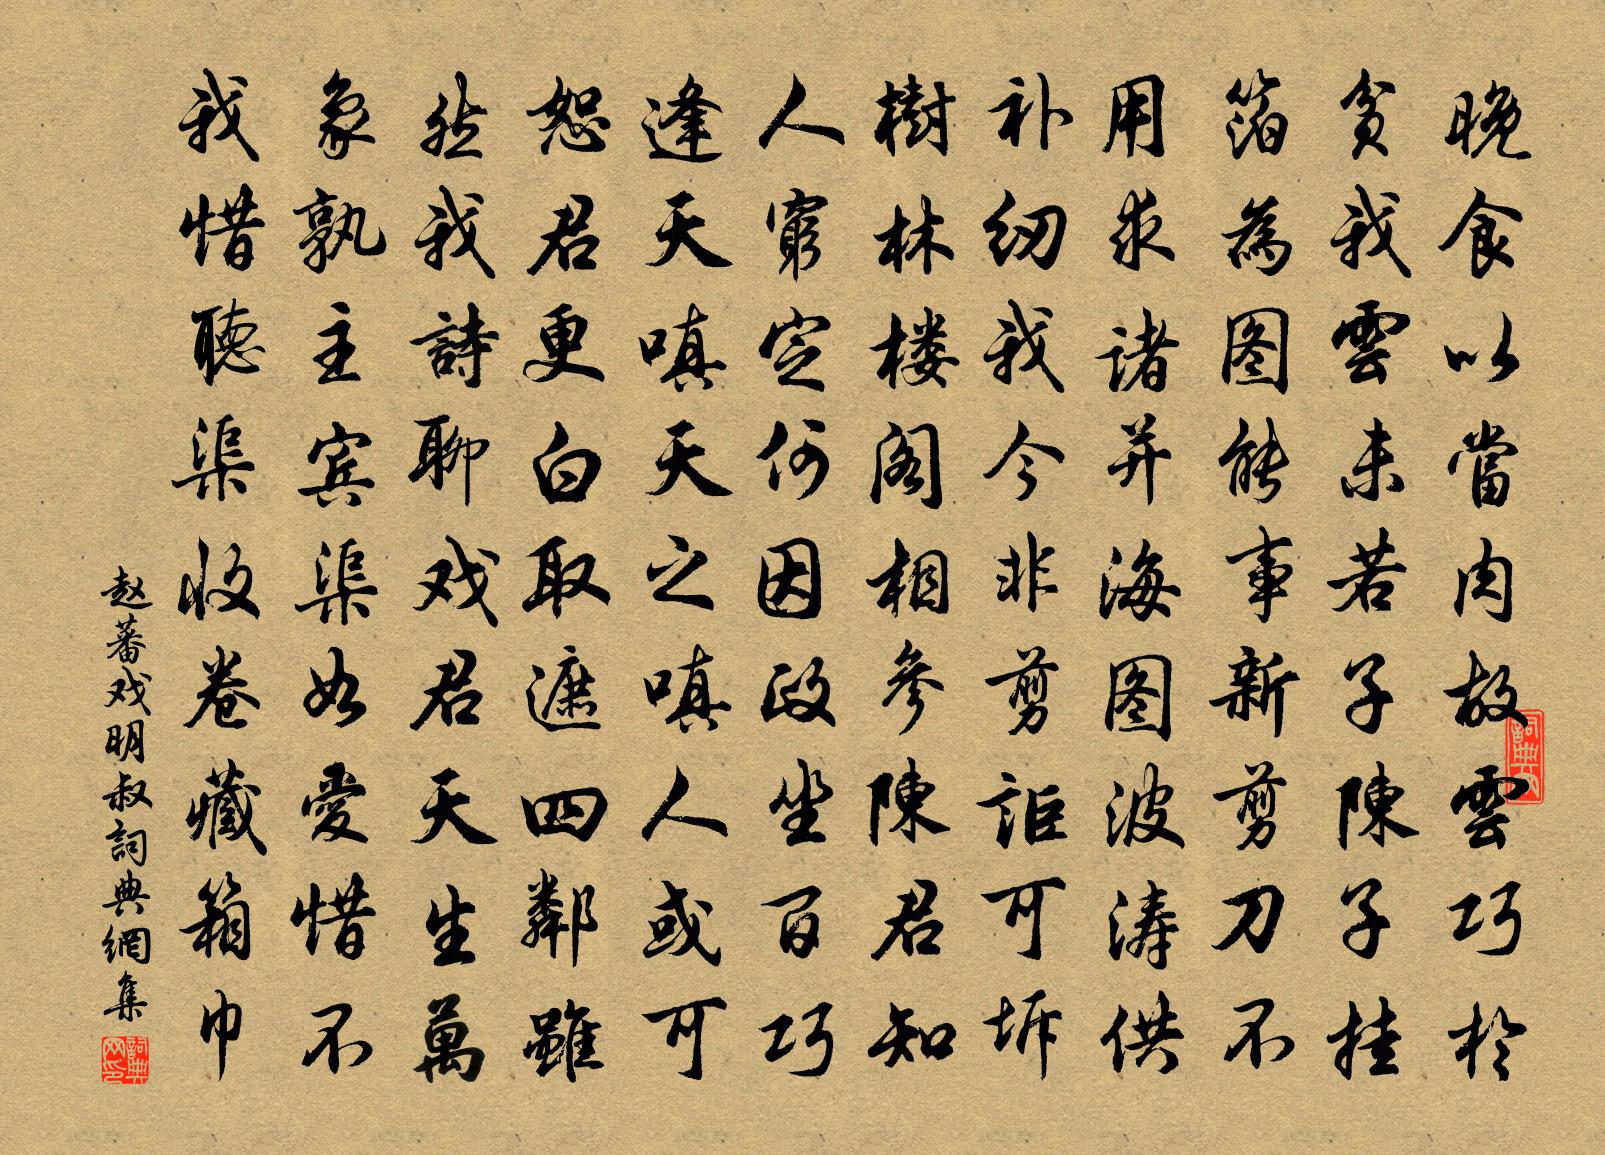 晚食以當肉故雲巧於
貧我雲未若子陳子挂
箔為图能事新剪刀不
用求诸并海图波濤供
补纫我今非剪詎可坼
樹林楼阁相參陳君知
人窮定何因政坐百巧
逢天嗔天之嗔人或可
恕君更白取遮四鄰雖
然我詩聊戏君天生萬
象孰主宾渠如愛惜不
我惜聽渠收卷藏箱巾
赵蕃戏明叔詞典網集
詞典网
詞典网印